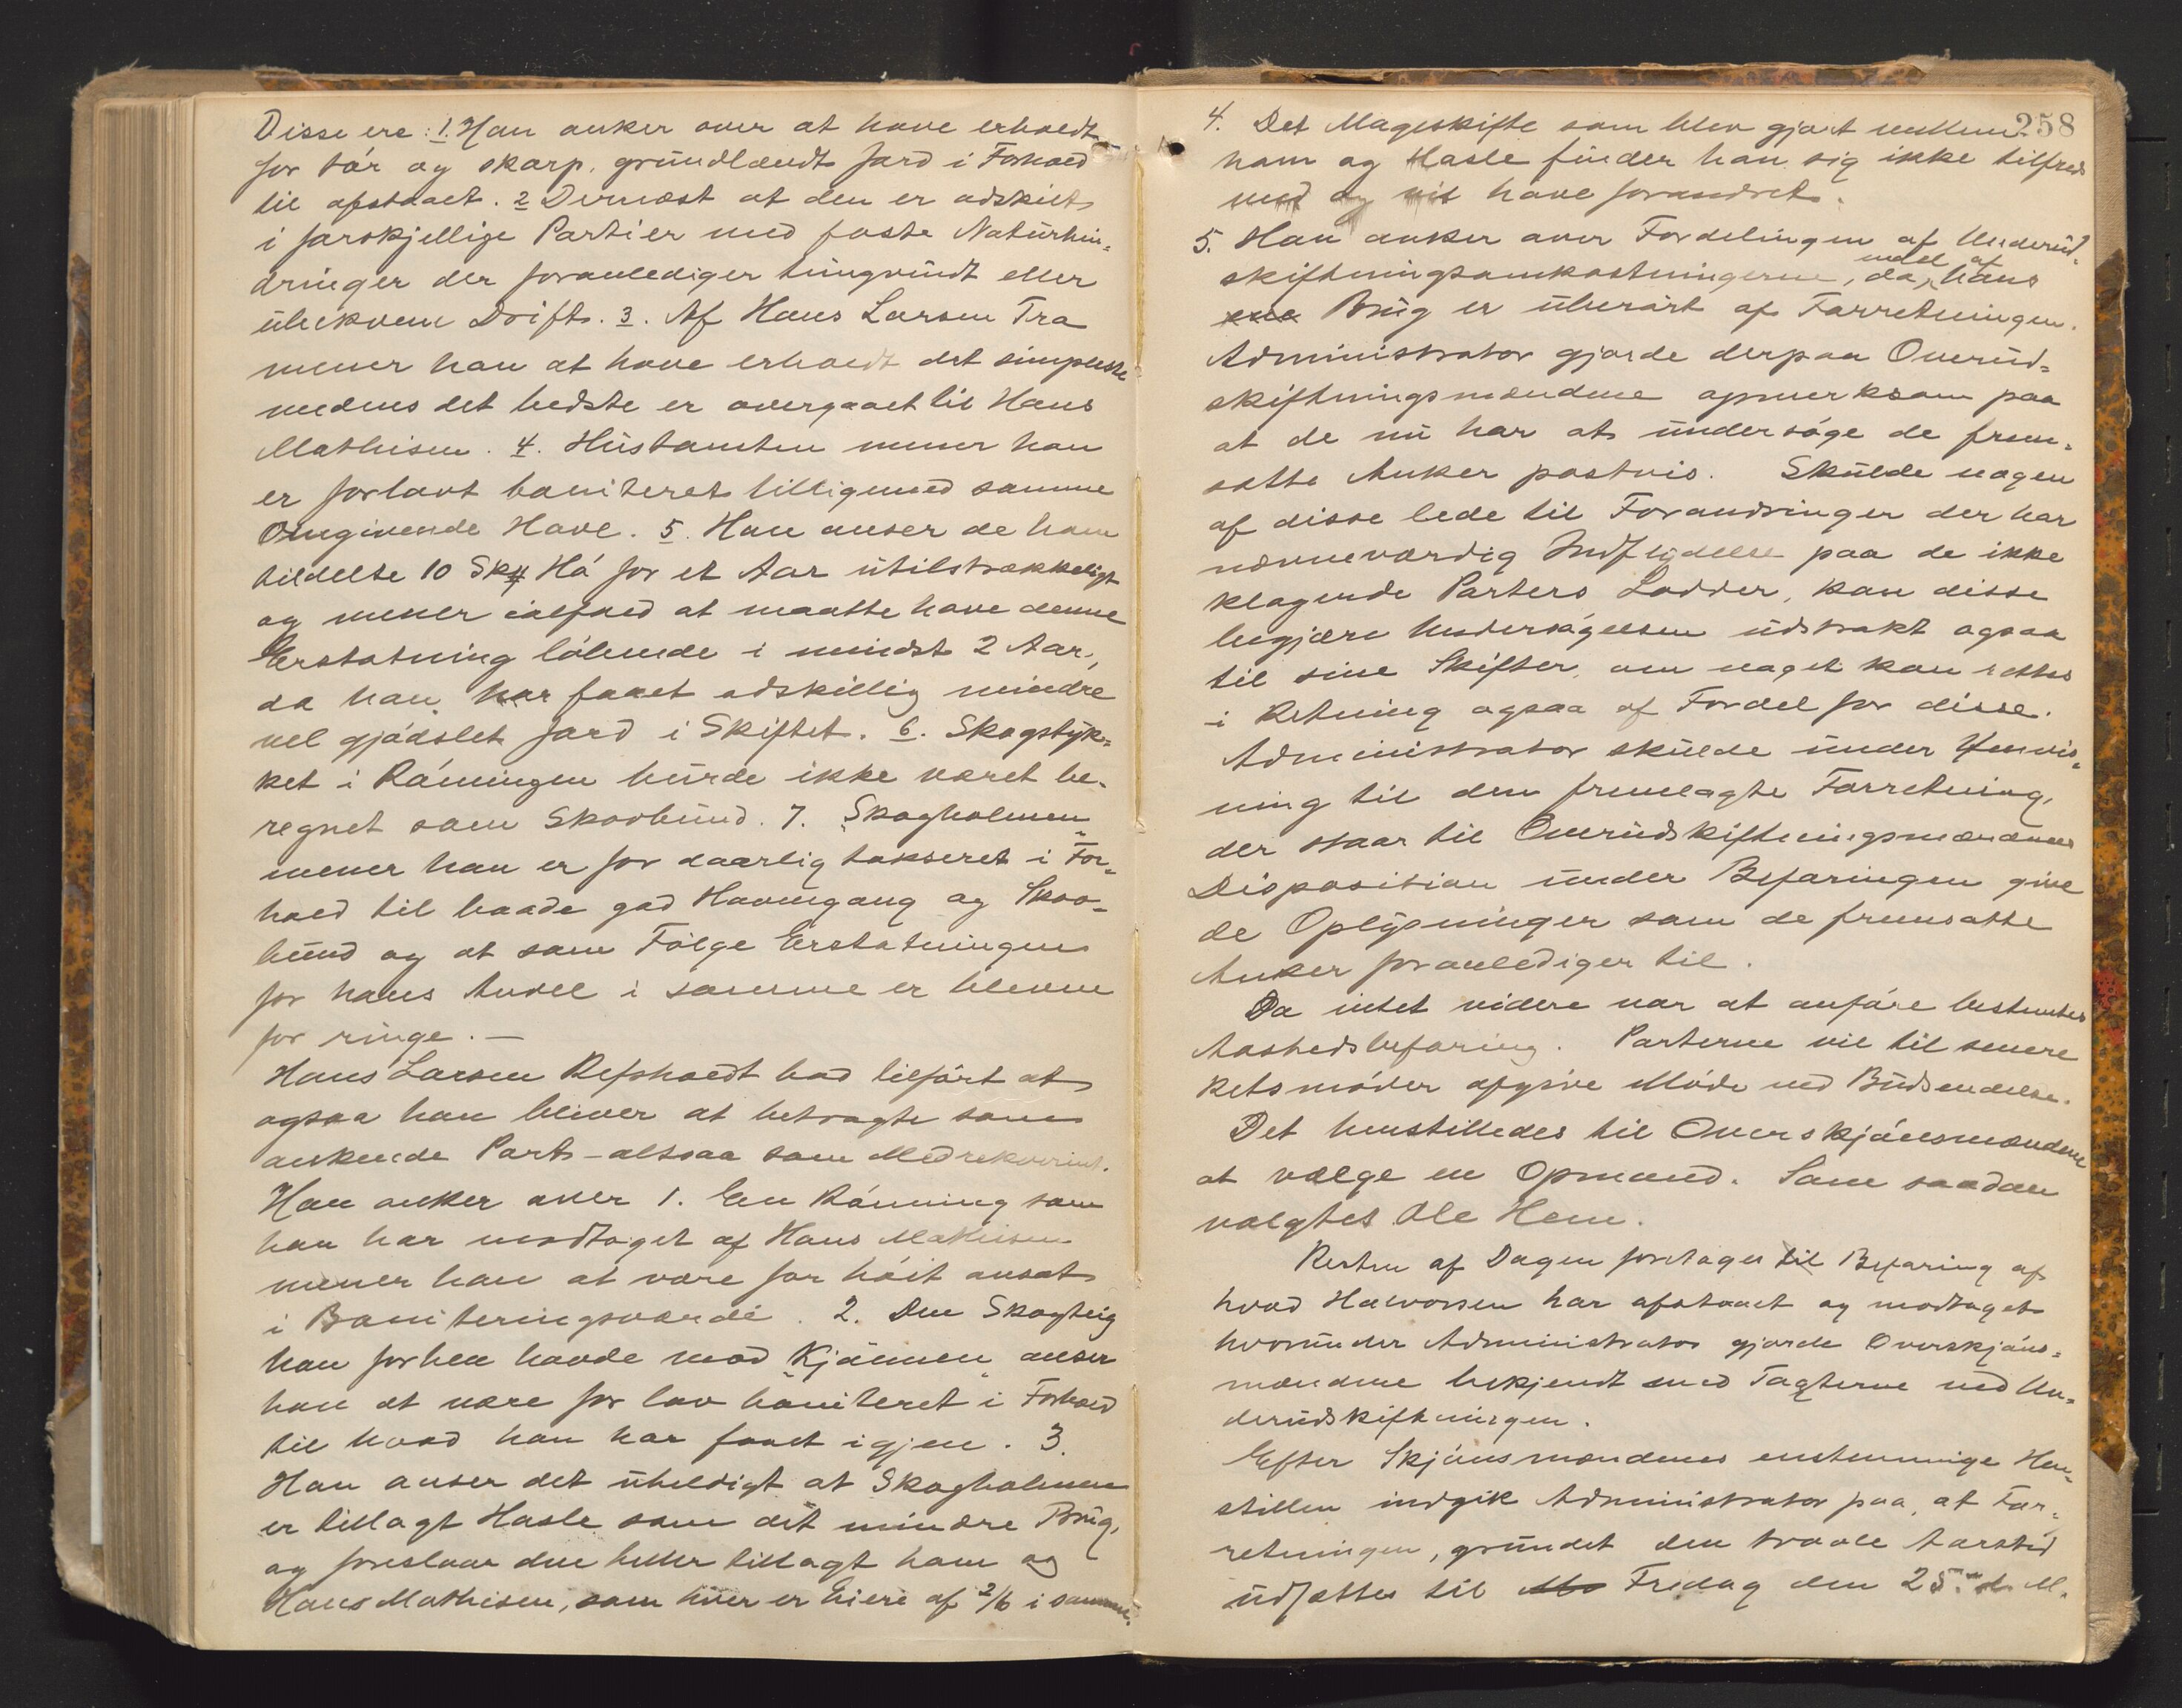 Disse ere: 1. Han anker over at have erholdt
for tór og skarp, grundlændt Jord i Forhold
til afstaaet. 2 Dernæst at den er adskilt
i forskjellige Partier med faste Naturhin-
dringer der foranlediger tungvindt eller
ubekvem Drift. 3. Af Hans Larsen Tra
mener han at have erholdt det simpleste
medens det bedste er overgaaet til Hans
Mathisen. 4. Hustomten mener han
er forlavt boniteret tilligemed samme
Omgivende Have. 5. Han anser de ham
tildelte 10 Sk# Hó for et Aar utilstrækkeligt
og mener ialfald at maatte have denne
Erstatning lóbende i mindst 2 Aar,
da han har faaet adskillig mindre
vel gjódslet Jord i Skiftet. 6. Skogstyk-
ket i Rónningen burde ikke været be-
regnet som Skovbund. 7. "Skogholmen"
mener han er for daarlig takseret i For-
hold til baade god Havnegang og Skov-
bund og at som Fólge Erstatningen
for hans Andel i samme er bleven
for ringe. —
Hans Larsen Refsholdt bad tilfórt at
ogsaa han bliver at betragte som
ankende Part - altsaa som Medrekvirent.
Han anker over 1. En Rónning som
han har modtaget af Hans Mathisen
mener han at være for hóit ansat
i Boniteringsværdi. 2. Den Skogteig
han forhen havde mod "Kjónnen" anser
han at være for lav boniteret i Forhold
til hvad han har faaet igjen. 3.
Han anser det uheldigt at Skogholmen
er tillagt Hasle som dit mindre Brug,
og foreslaar den heller tillagt ham og
Hans Mathisen, som hver er Eiere af 2/6 i samme.
258
4. Det Mageskifte som blev gjort mellem
ham og Hasle finder han sig ikke tilfreds
med og vil have forandret.
5. Han anker over Fordelingen af Underud-
skiftningsomkostningerne, da endel af hans
Brug er uberórt af Forretningen.
Administrator gjorde derpaa Overud-
skiftningsmændene opmerksom paa
at de nu har at undersóge de frem-
satte Anker postvis. Skulde nogen
af disse lede til Forandringer der har
nævneværdig Indflydelse paa de ikke
klagende Parters Lodder, kan disse
begjære Undersógelsen udstrakt ogsaa
til sine Skifter, om noget kan rettes
i Retning ogsaa af Fordel for disse.
Administrator skulde under Henvis-
ning til den fremlagte Forretning,
der staar til Overudskiftningsmændenes
Disposition under Befaringen give
de Oplysninger som de fremsatte
Anker foranlediger til.
Da intet videre var at anfóre bestemtes
Aastedsbefaring. Parterne vil til senere
Retsmóder afgive Móde ved Budsendelse.
Det henstilledes til Overskjónsmændene
at vælge en Opmand. Som saadan
valgtes Ole Hem.
Resten af Dagen foretages til Befaring af
hvad Halvorsen har afstaaet og modtaget
hvorunder Administrator gjorde Overskjóns-
mændene bekjendt med Tagterne ved Un-
derudskiftningen.
Efter Skjónsmændenes enstemmige Hen-
stillen indgik Administrator paa, at For-
retningen, grundet den travle Aarstid
udsættes til Fredag den 25. d. M.